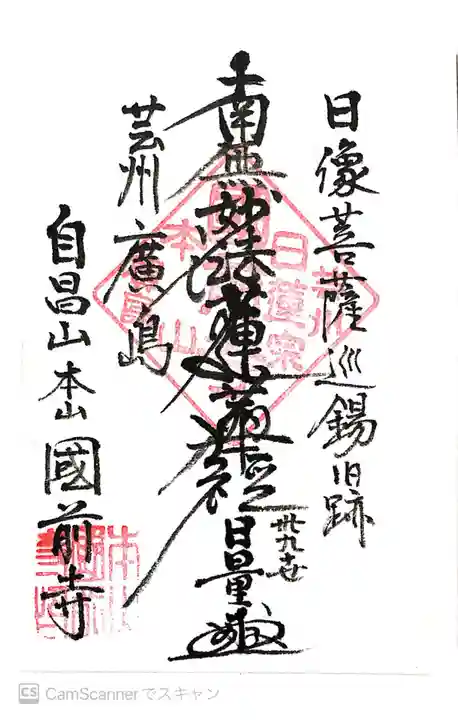 日像菩薩巡錫旧跡
南無妙法蓮華経
卅九世
日量
芸州廣島
自昌山本山國前寺
日蓮宗
本山
CS CamScannerでスキャン